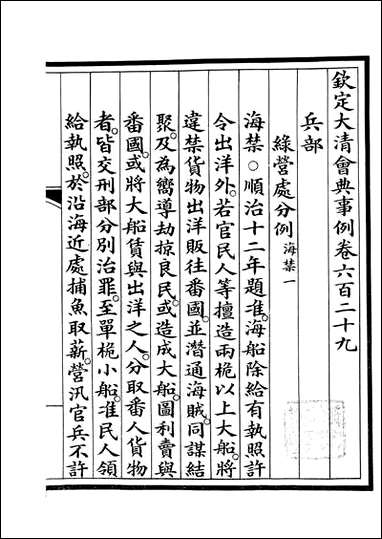 欽定大清會典事例卷六百二十九
兵部
綠營處分例海禁一
海禁○順治十二年題准。海船除給有執照許
令出洋外。若官民人等擅造兩桅以上大船。將
違禁貨物出洋販往番國。並潛通海賊。同謀結
聚。及為嚮導劫掠良民。或造成大船。圖利賣與
番國。或將大船賃與出洋之人。分取番人貨物
者。皆交刑部分別治罪。至單桅小船。准民人領
給執照。於沿海近處捕魚取薪。營汛官兵不許